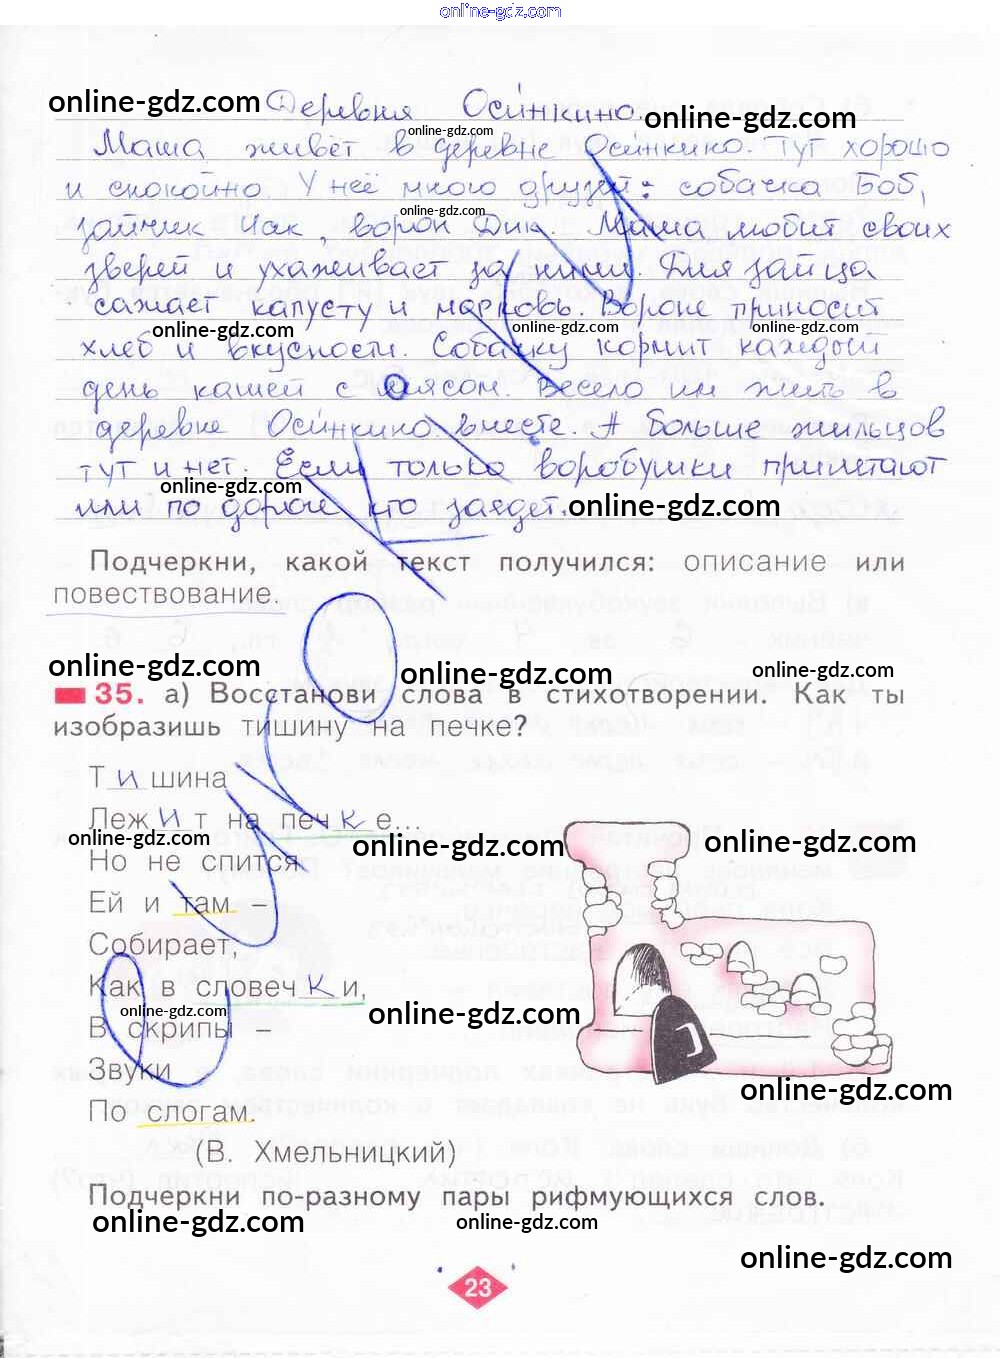 online-gdz.com
online-gdz.com Деревня Осинкино. online-gdz.com
online-gdz.com
Маша живёт в деревне Осинкино. Тут хорошо
и спокойно. У неё много друзей: собачка Боб,
online-gdz.com
зайчик Чак, ворон Дик. Маша любит своих
зверей и ухаживает за ними. Для зайца
сажает капусту и морковь. Вороне приносит
online-gdz.com online-gdz.com online-gdz.com
хлеб и вкусности. Собачку кормит каждый
день кашей с мясом. Весело им жить в
деревне Осинкино вместе. А больше жильцов
тут и нет. Если только воробушки прилетают
online-gdz.com
или по дороге кто заедет. online-gdz.com
Подчеркни, какой текст получился: описание или
повествование.
online-gdz.com online-gdz.com online-gdz.com
35. а) Восстанови слова в стихотворении. Как ты
изобразишь тишину на печке?
Тишина
Лежит на печке...
online-gdz.com online-gdz.com online-gdz.com
Но не спится
Ей и там –
Собирает,
Как в словечки,
online-gdz.com online-gdz.com
В скрипы –
Звуки
online-gdz.com
По слогам.
(В. Хмельницкий)
Подчеркни по-разному пары рифмующихся слов.
online-gdz.com online-gdz.com
online-gdz.com
23